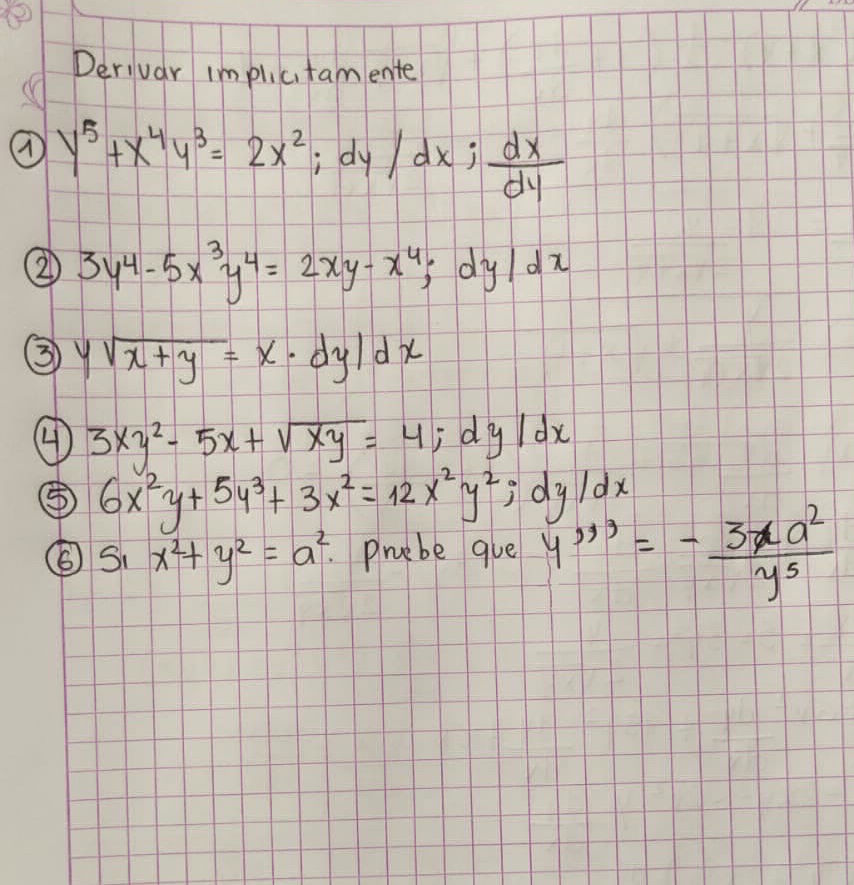 Derivar implicitamente
① y⁵ + x⁴y³ = 2x²; dy / dx; dx/dy
② 3y⁴ - 5x³y⁴ = 2xy - x⁴; dy/dx
③ y√(x+y) = x · dy/dx
④ 3xy² - 5x + √(xy) = 4; dy/dx
⑤ 6x²y + 5y³ + 3x² = 12x²y²; dy/dx
⑥ Si x² + y² = a². pruebe que y''' = - 3xa²/y⁵